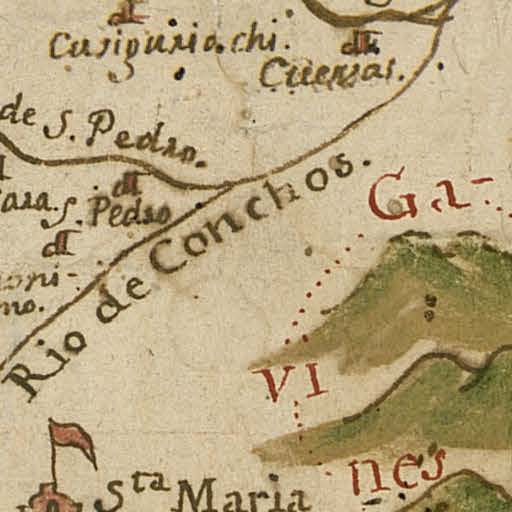 Cusiguriachi.
Cuensas.
de S. Pedro.
S. Pedro
Rio de Conchos.
Ga-
VI
nes
Sta Maria